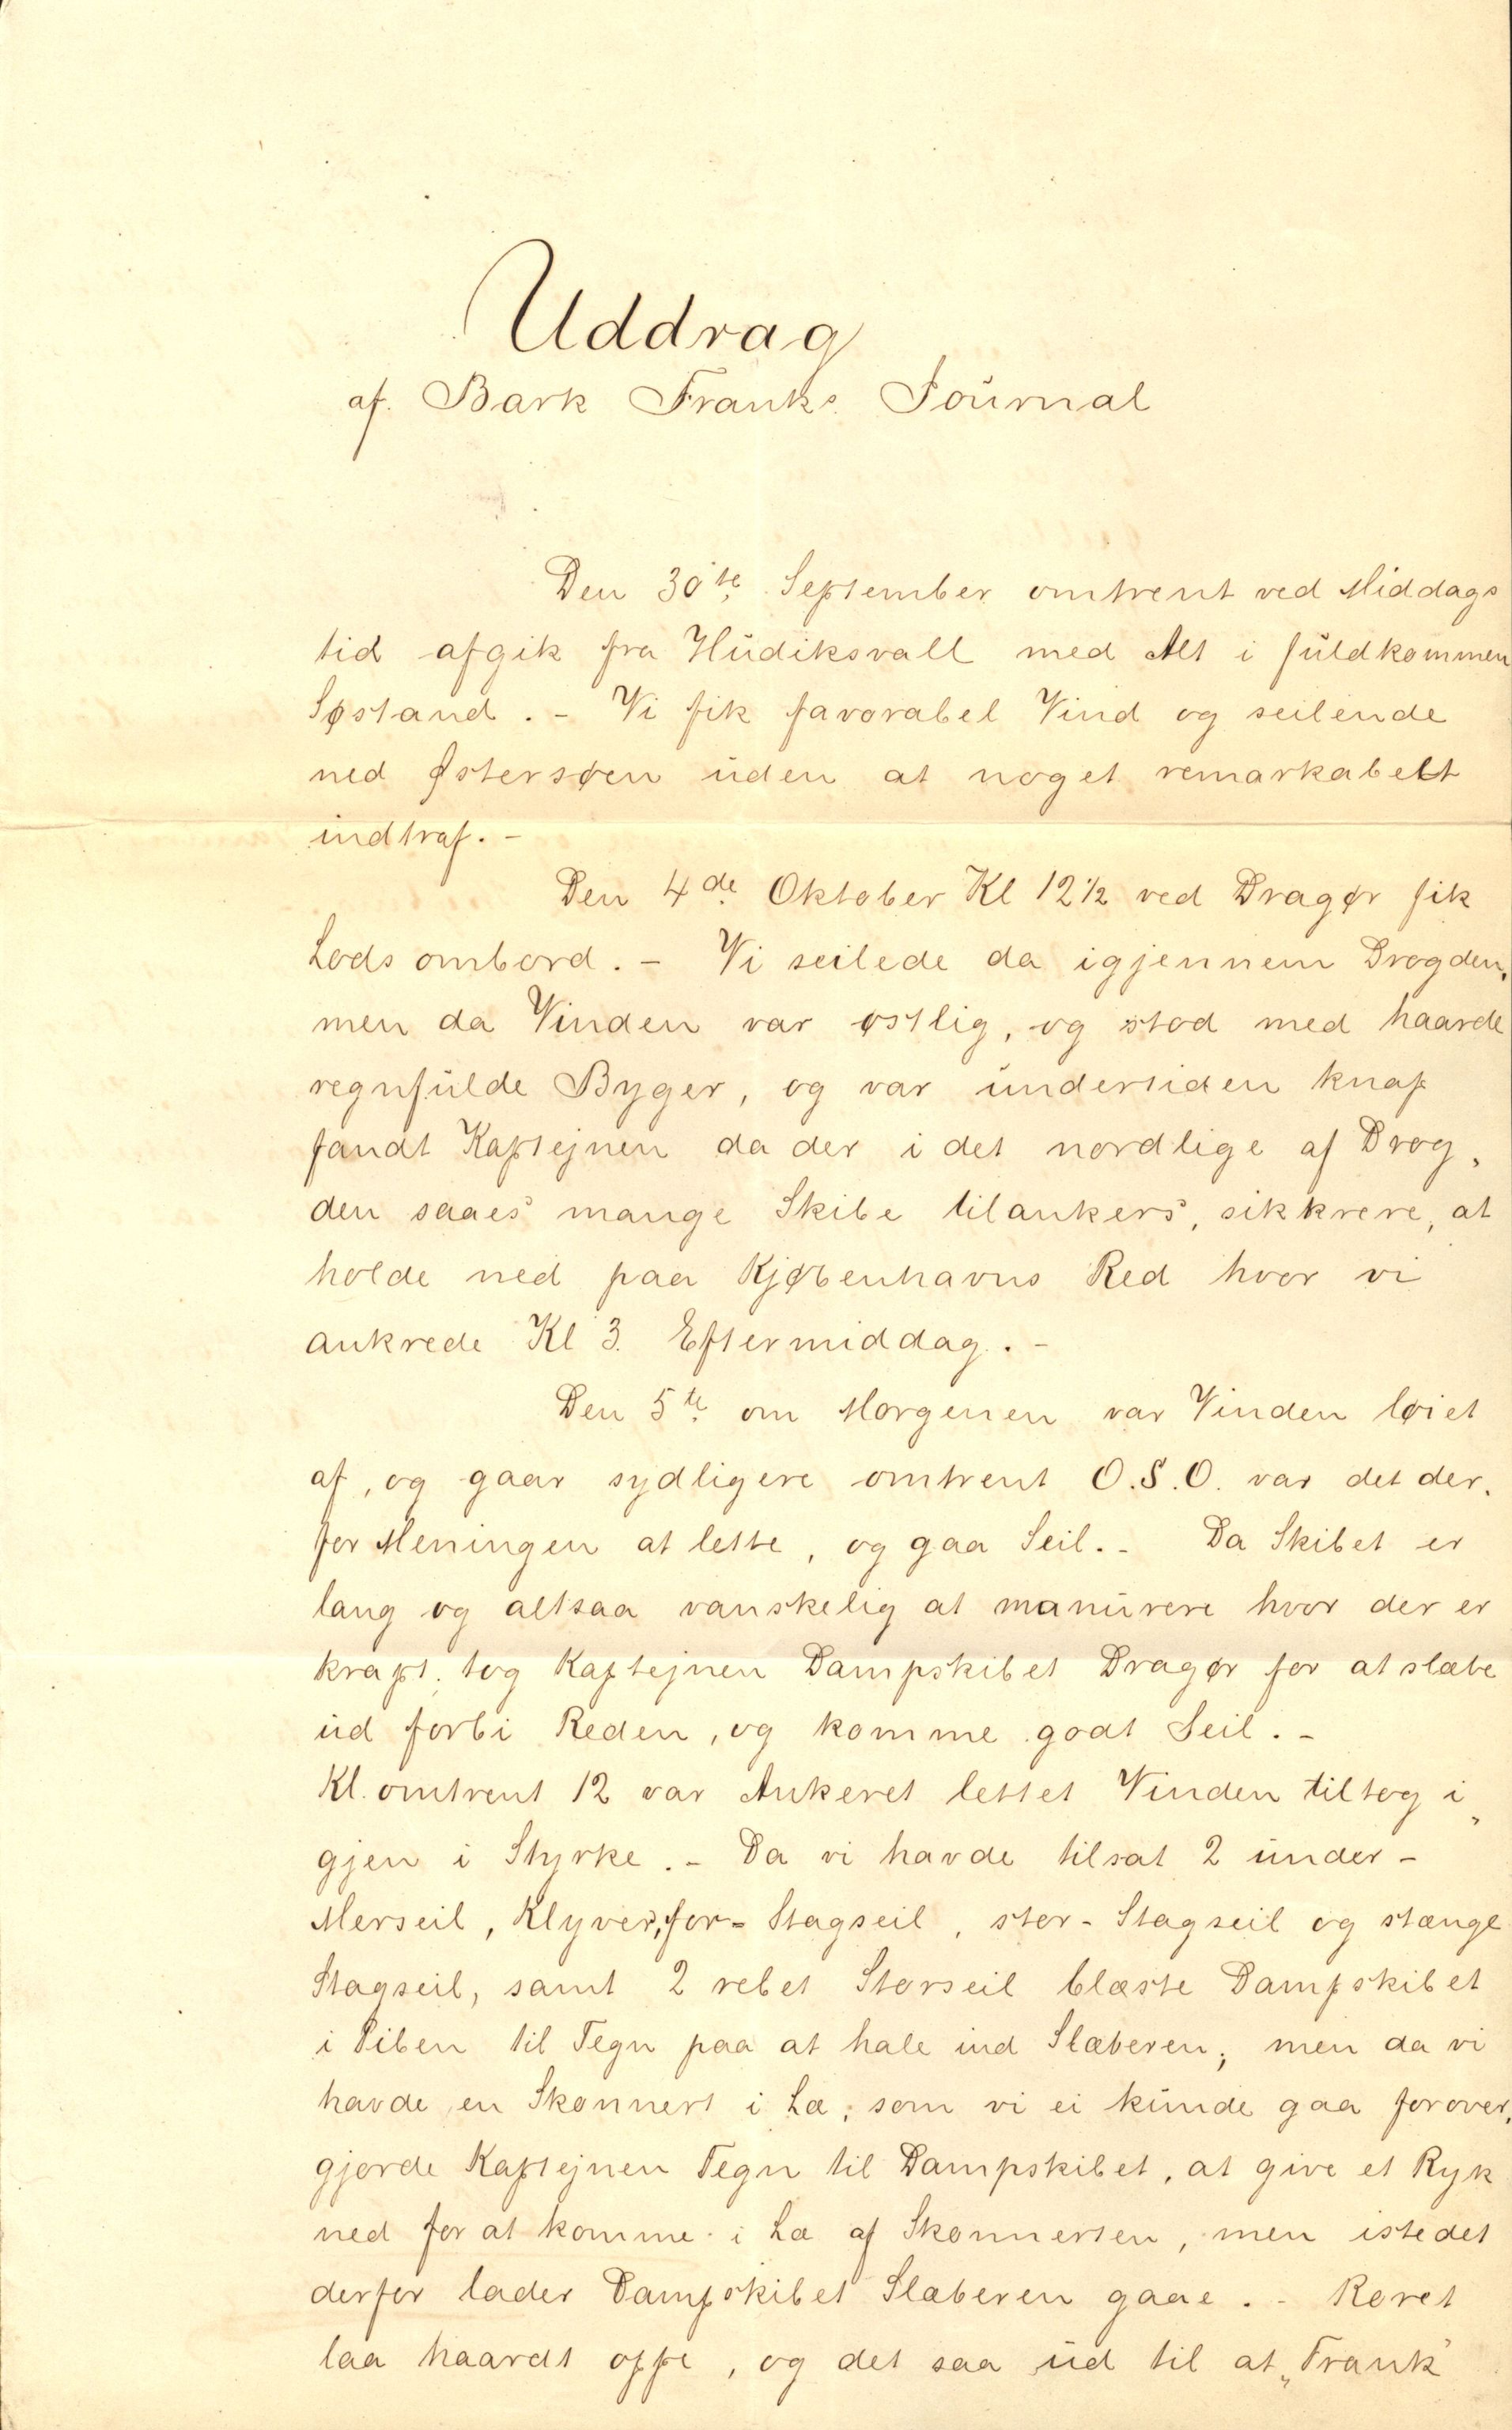 Uddrag
af. Bark Franks Journal
Den 30te September omtrent ved Middags
tid afgik fra Hudiksvall med Alt i fuldkommen
Søstand. - Vi fik favorabel Vind og seilende
ned Østersøen uden at noget remarkabelt
indtraf. -
Den 4de Oktober Kl 12 1/2 ved Dragør fik
Lods ombord. - Vi seilede da igjennem Drogden,
men da Vinden var østlig, og stod med haarde
regnfulde Byger, og var undertiden knap
fandt Kaptejnen da der i det nordlige af Drog„
den saaes mange Skibe tilankers, sikkrere, at
holde ned paa Kjøbenhavns Red hvor vi
ankrede Kl 3. Eftermiddag. -
Den 5te om Morgenen var Vinden løiet
af, og gaar sydligere omtrent O.S.O. var det der„
for Meningen at lette, og gaa Seil. - Da Skibet er
lang og altsaa vanskelig at manurere hvor der er
krapt. tog Kaptejnen Dampskibet Dragør for at slæbe
ud forbi Reden, og komme godt Seil. -
Kl. omtrent 12 var Ankeret lettet Vinden tiltog i„
gjen i Styrke. - Da vi havde tilsat 2 under-
Merseil, Klyver, for- Stagseil, stor- Stagseil og stænge
Stagseil, samt 2 rebet Storseil blæste Dampskibet
i Piben til Tegn paa at hale ind Slæberen; men da vi
havde en Skonnert i Læ, som vi ei kunde gaa forover,
gjorde Kaptejnen Tegn til Dampskibet, at give et Ryk
ned for at komme i Læ af Skonnerten, men istedet
derfor lader Dampskibet Slæberen gaae. - Roret
laa haardt oppe, og det saa ud til at „Frank"